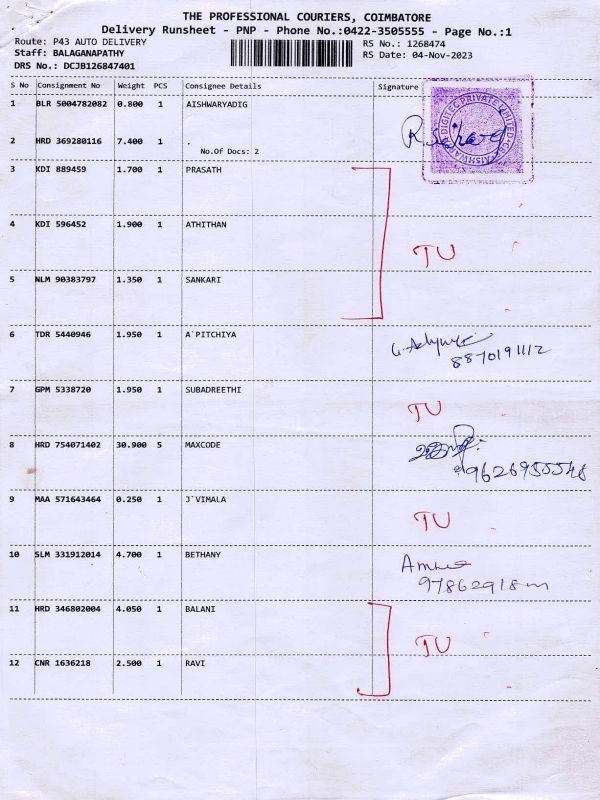 THE PROFESSIONAL COURIERS, COIMBATORE
Delivery Runsheet - PNP - Phone No.:0422-3505555 - Page No.:1
Route: P43 AUTO DELIVERY
RS No.: 1268474
Staff: BALAGANAPATHY
RS Date: 04-Nov-2023
DRS No.: DCJB126847401
S No Consignment No Weight PCS Consignee Details Signature
1 BLR 5004782082 0.800 1 AISHWARYADIG
2 HRD 369280116 7.400 1 .
No.Of Docs: 2
3 KDI 889459 1.700 1 PRASATH
4 KDI 596452 1.900 1 ATHITHAN
TU
5 NLM 90383797 1.350 1 SANKARI
6 TDR 5440946 1.950 1 A`PITCHIYA
8870191112
7 GPM 5338720 1.950 1 SUBADREETHI
TU
8 HRD 754071402 30.900 5 MAXCODE
9626955548
9 MAA 571643464 0.250 1 J`VIMALA
TU
10 SLM 331912014 4.700 1 BETHANY
11 HRD 346802004 4.050 1 BALANI
TU
12 CNR 1636218 2.500 1 RAVI